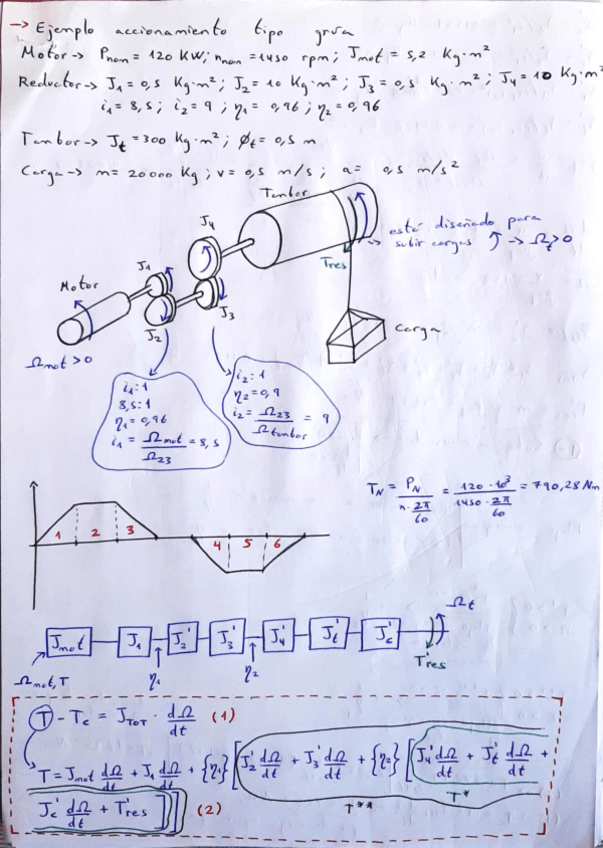 → Ejemplo accionamiento tipo grúa
Motor → Pnom = 120 KW; nnom = 1450 rpm; Jmot = 5,2 Kg·m²
Reductor → J1 = 0,5 Kg·m²; J2 = 10 Kg·m²; J3 = 0,5 Kg·m²; J4 = 10 Kg·m²
i1 = 8,5; i2 = 9; η1 = 0,96; η2 = 0,96
Tambor → Jt = 300 Kg·m²; Øt = 0,5 m
Carga → m = 20000 Kg; v = 0,5 m/s; a = 0,5 m/s²
Tambor
está diseñado para
subir cargas ↑ → Ωt > 0
Tres
J4
J1
Motor
J2
J3
Carga
Ωmot > 0
i1:1
8,5:1
η1 = 0,96
i1 = Ωmot / Ω23 = 8,5
i2:1
η2 = 0,9
i2 = Ω23 / Ωtambor = 9
TN = PN / (n · 2π/60) = 120 · 10³ / (1450 · 2π/60) = 790,28 Nm
1 2 3
4 5 6
Jmot J1 J2' J3' J4' Jt' Jc' Ωt
Ωmot, T η1 η2 T'res
T - Tc = JTOT · dΩ/dt (1)
T = Jmot dΩ/dt + J1 dΩ/dt + {η1} [J2' dΩ/dt + J3' dΩ/dt + {η2} [J4' dΩ/dt + Jt' dΩ/dt +
Jc' dΩ/dt + T'res]] (2)
T** T*